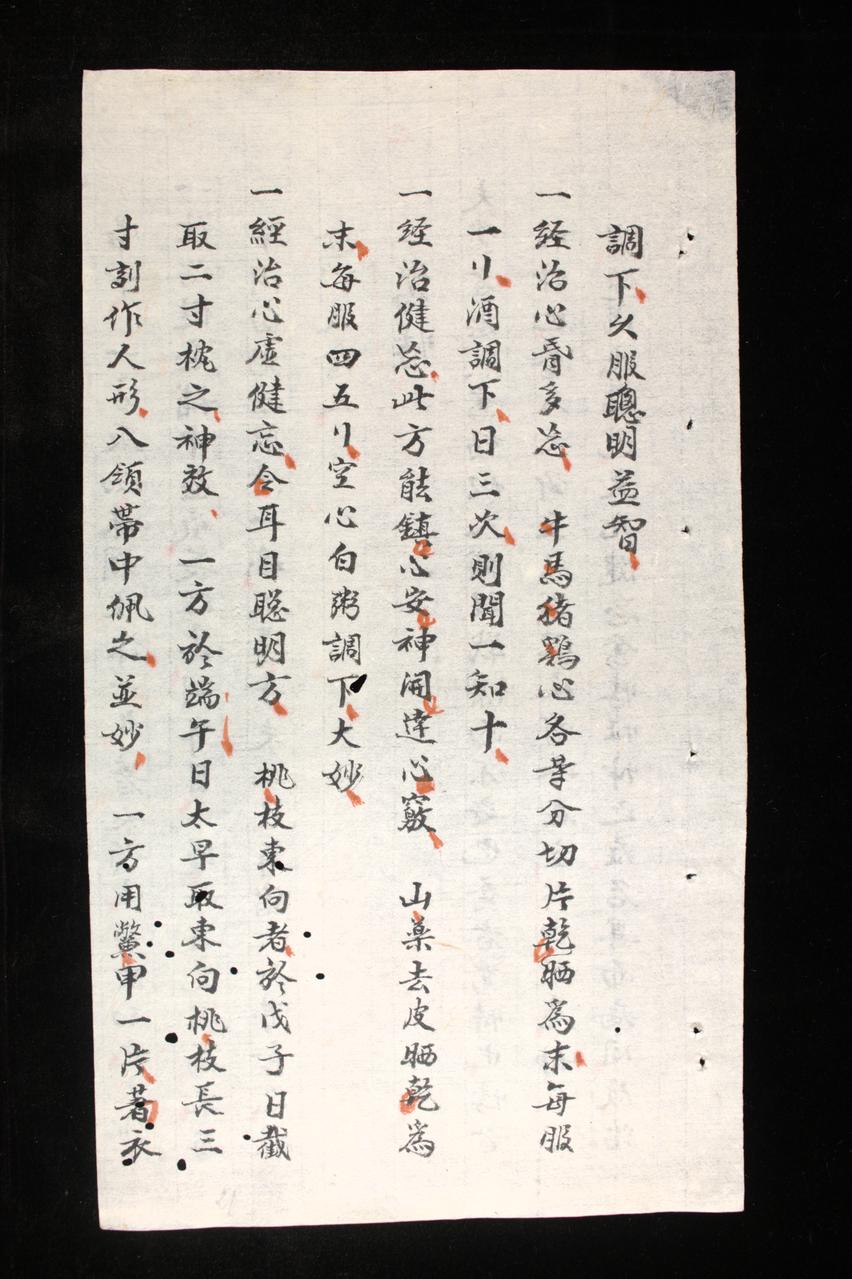 調下久服聰明益智
一経治心昏多忘 牛馬猪鷄心各等分切片乾晒爲末每服
一刂酒調下日三次則聞一知十
一経治健忘此方能鎮心安神開達心竅 山藥去皮晒乾爲
末每服四五刂空心白粥調下大妙
一經治心虛健忘令耳目聡明方 桃枝東向者於戊子日截
取二寸枕之神效 一方於端午日太早取東向桃枝長三
寸刻作人形八領帶中佩之並妙 一方用鱉甲一片著衣